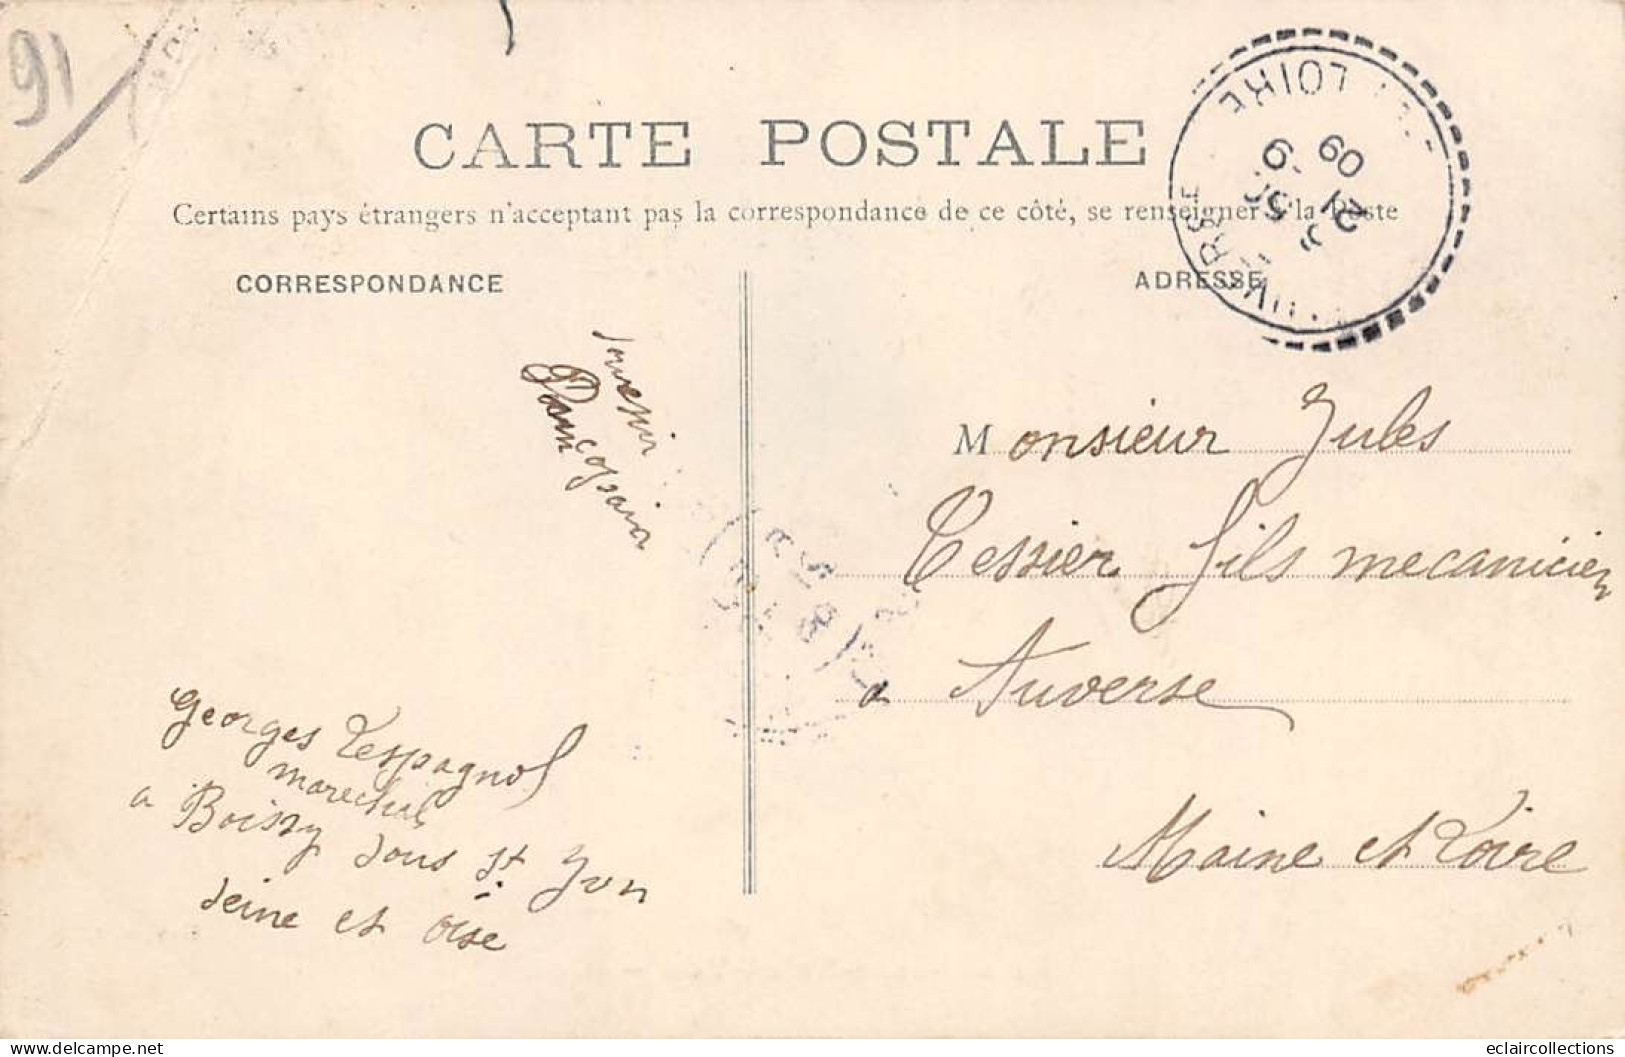 91
CARTE POSTALE
Certains pays étrangers n'acceptent pas la correspondance de ce côté, se renseigner à la Poste
CORRESPONDANCE
ADRESSE
LOIRE
21
09
Monsieur Jules
Tessier fils mecanicien
a Auverse
Maine et Loire
Souvenir
Georges Lespagnol
marechal
a Boissy sous st Yon
seine et oise
eclaircollections